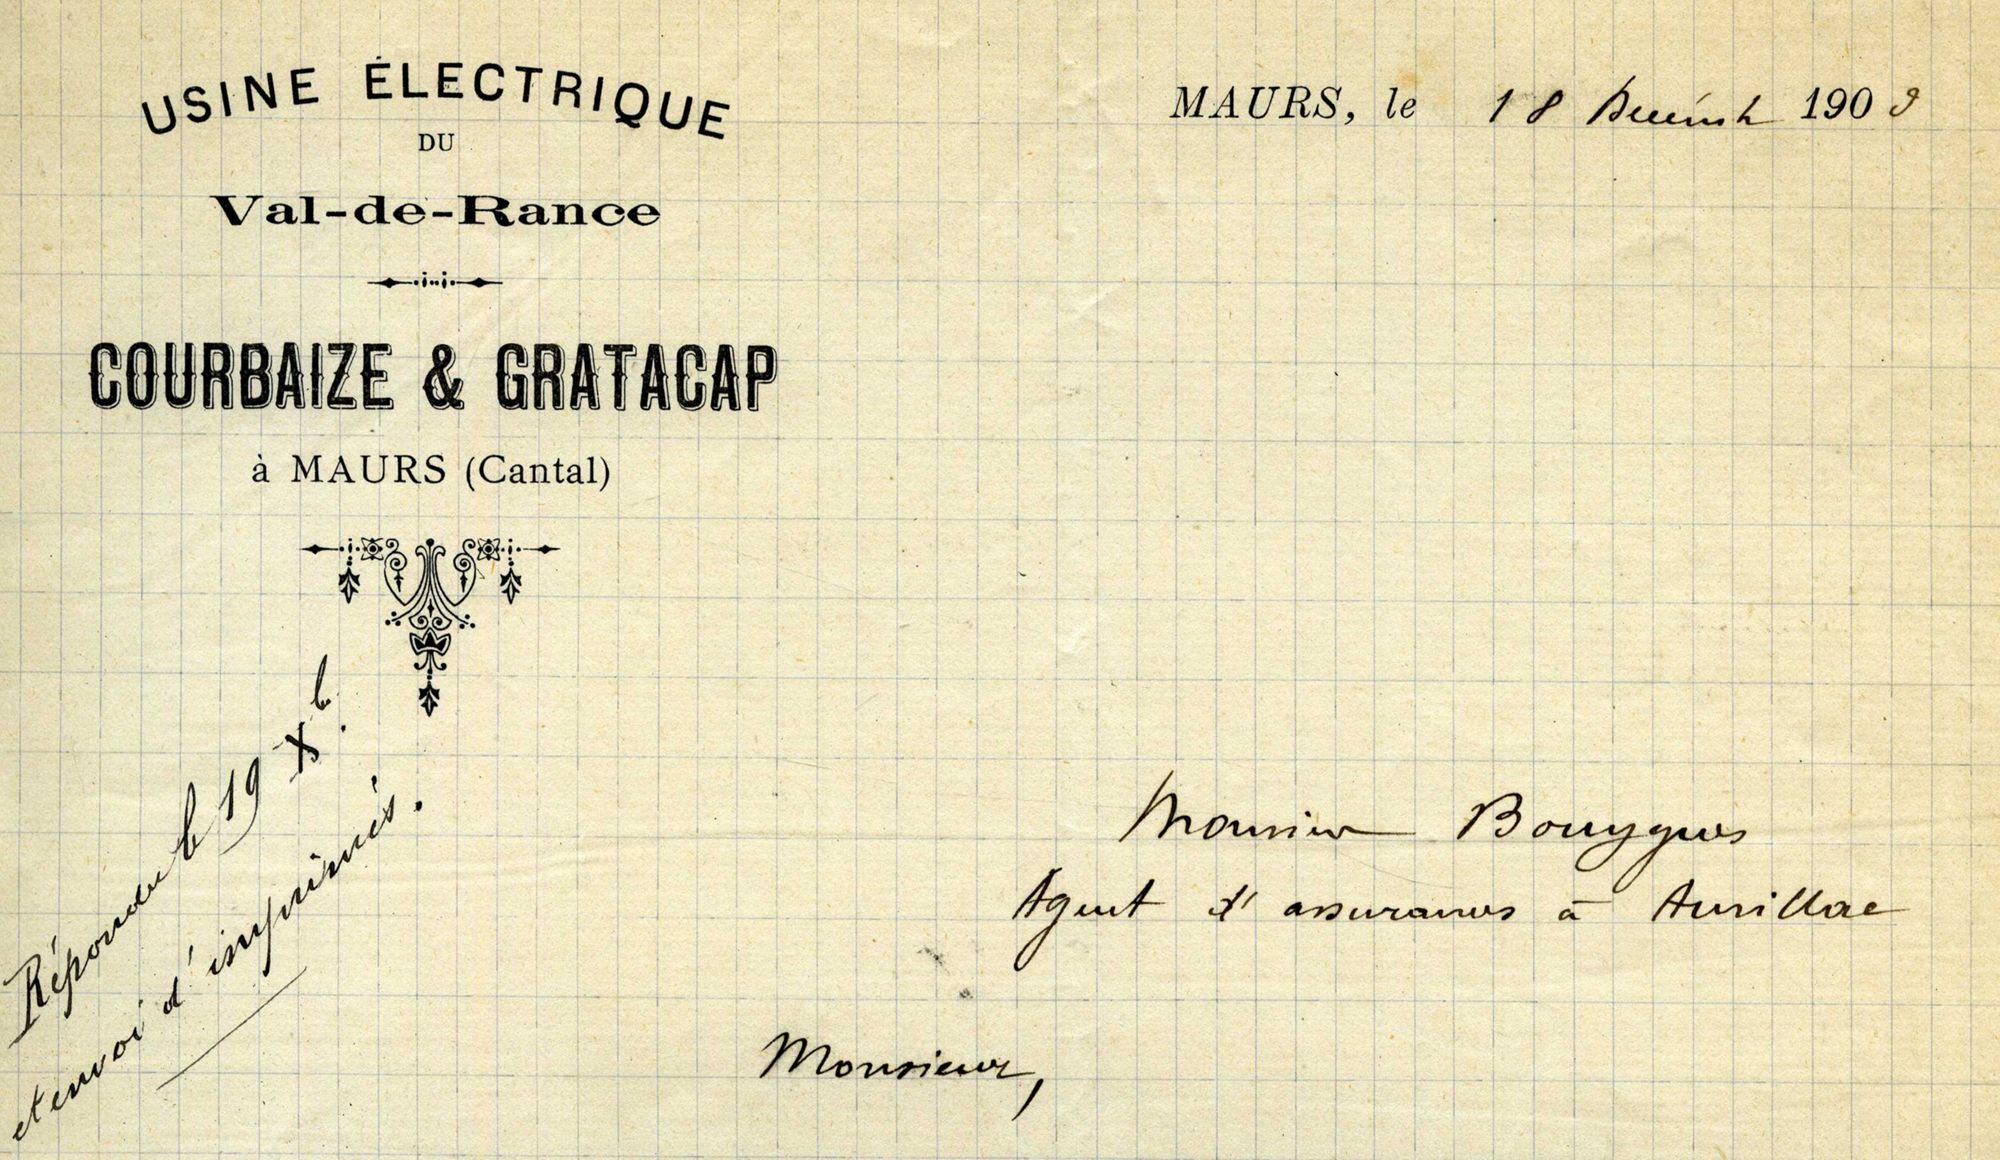 USINE ÉLECTRIQUE
DU
Val-de-Rance
COURBAIZE & GRATACAP
à MAURS (Cantal)
MAURS, le 18 Décembre 1903
Répondu le 19 Xb.
et envoi d'imprimés.
Monsieur Bouygues
Agent d'assurances à Aurillac
Monsieur,